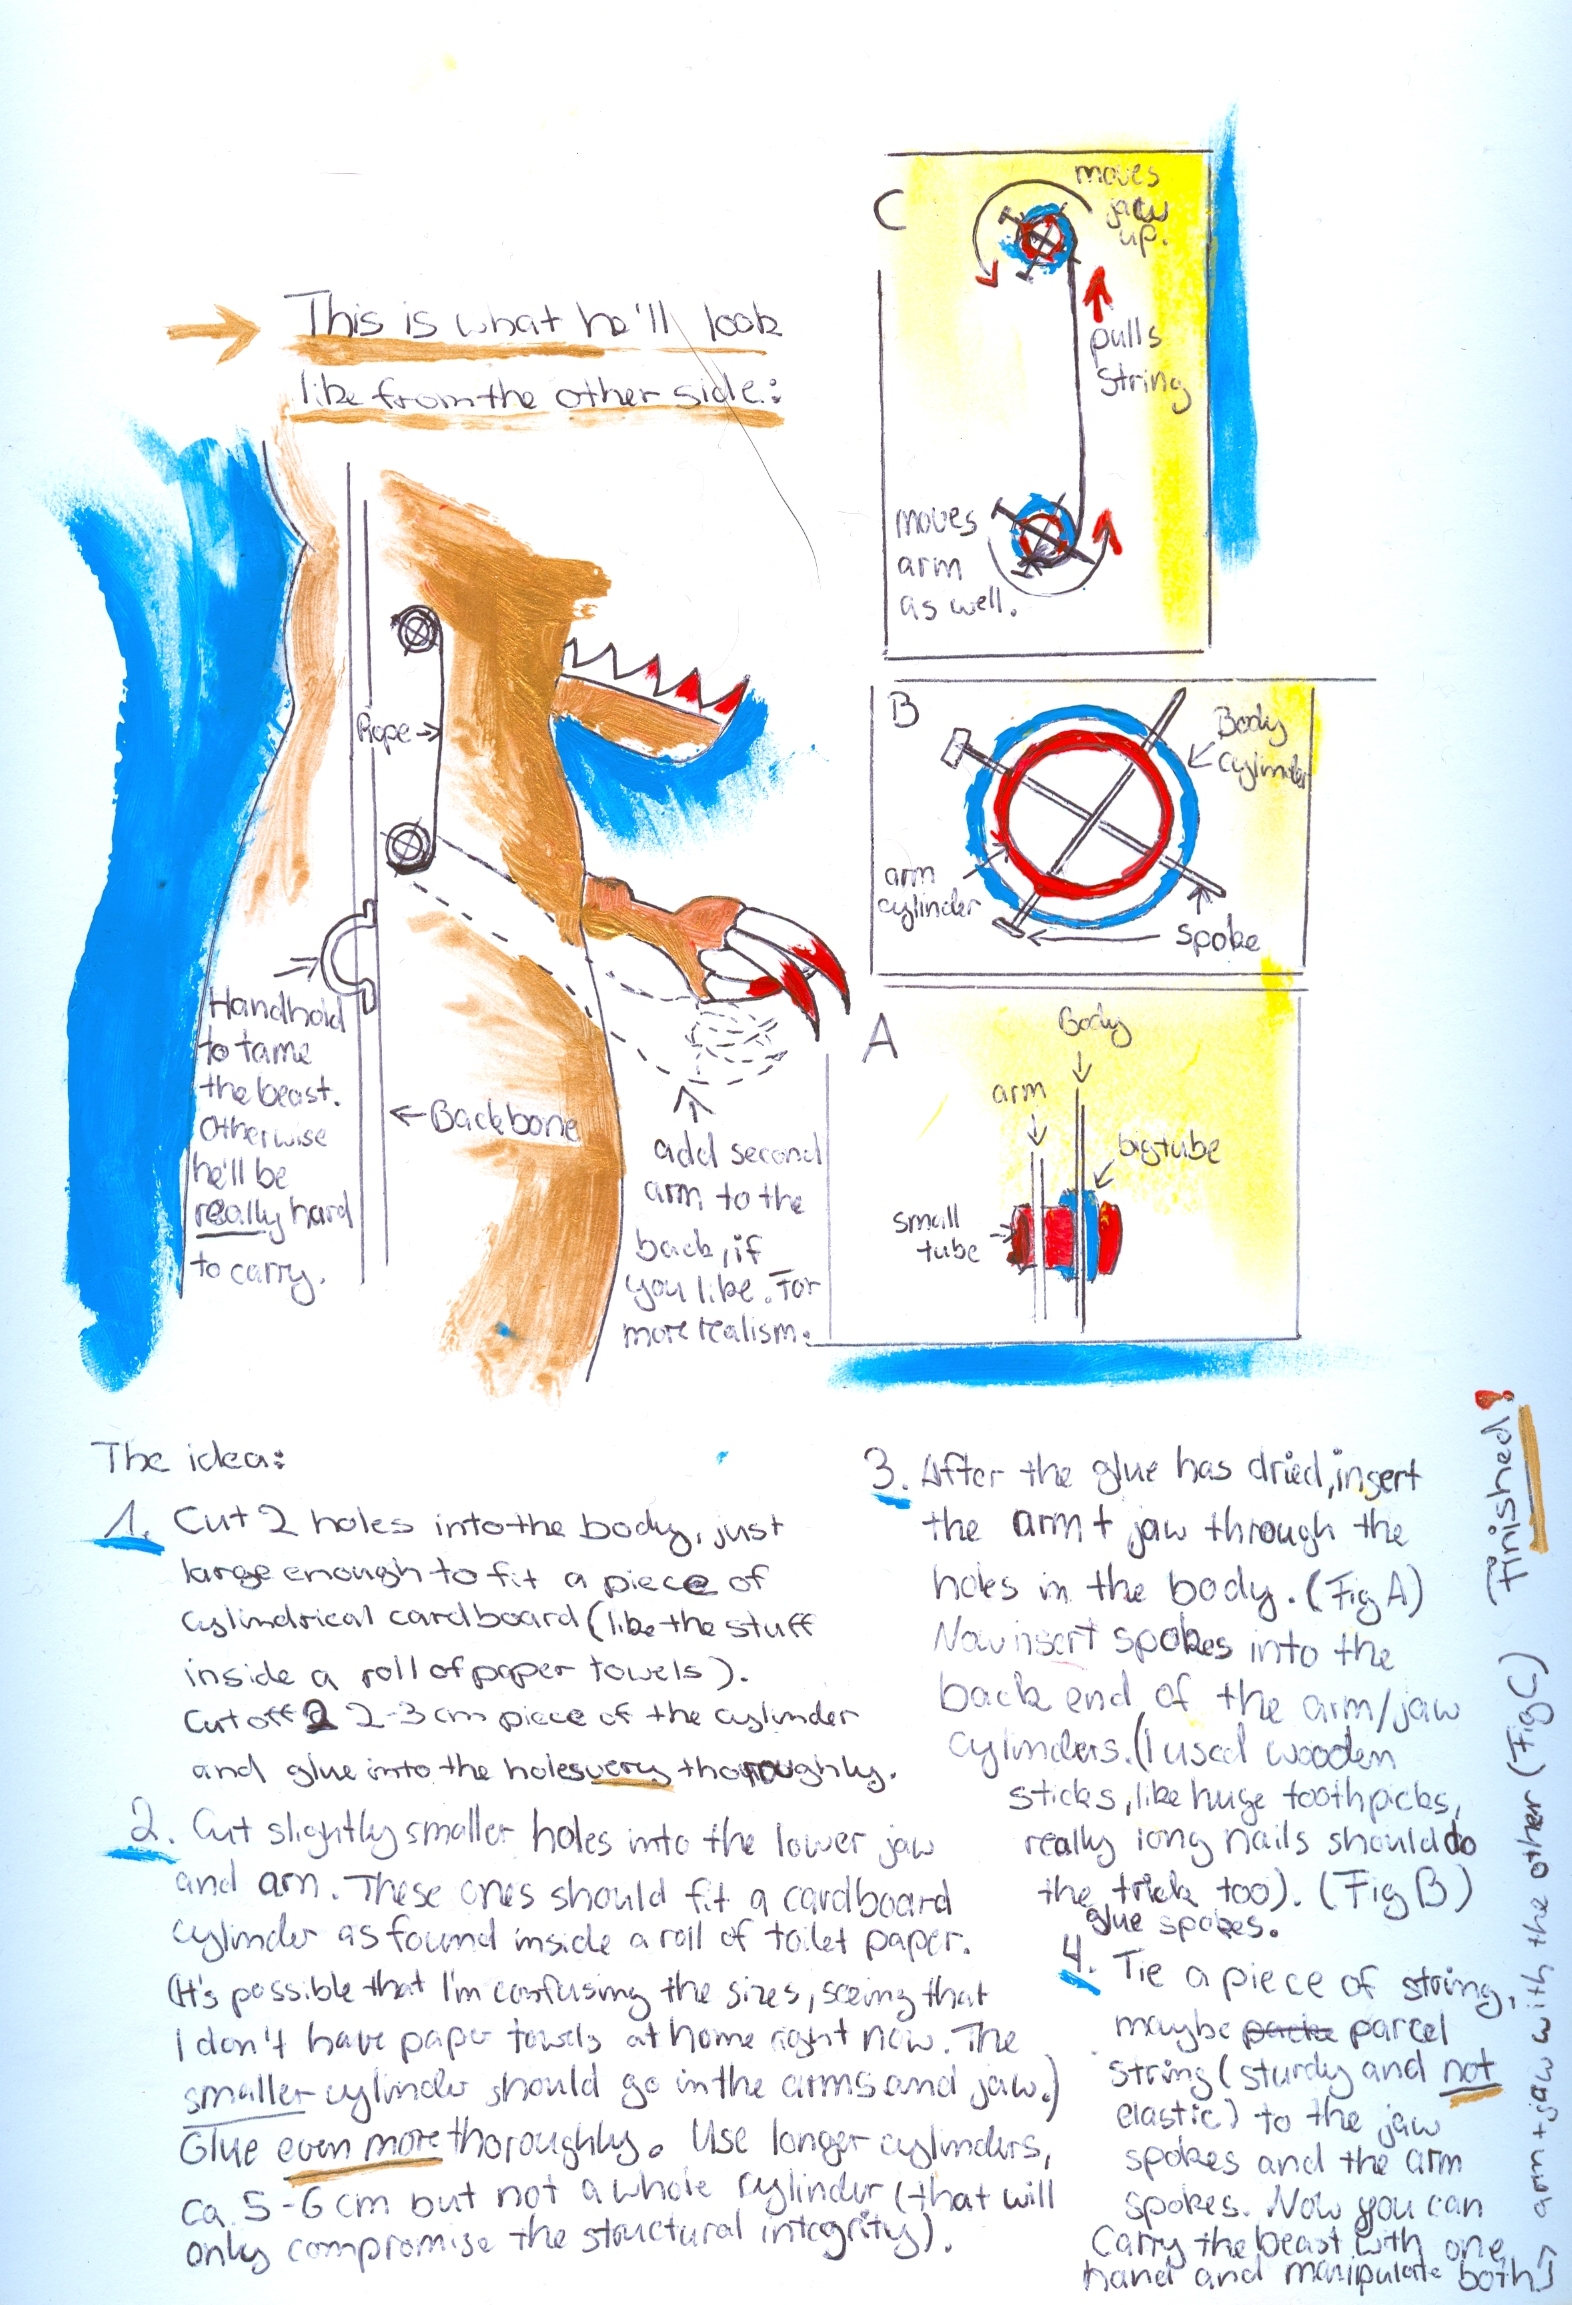 This is what he'll look
like from the other side:
C
moves
jaw
up.
pulls
string
moves
arm
as well.
Rope
B
Body
Cylinder
arm
cylinder
spoke
Handhold
to tame
the beast.
Otherwise
he'll be
really hard
to carry.
Backbone
add second
arm to the
back, if
you like. For
more realism.
A
Body
arm
bigtube
small
tube
The idea:
1. Cut 2 holes into the body, just
large enough to fit a piece of
cylindrical cardboard (like the stuff
inside a roll of paper towels).
Cut off 2 2-3 cm piece of the cylinder
and glue into the holes very thoroughly.
2. Cut slightly smaller holes into the lower jaw
and arm. These ones should fit a cardboard
cylinder as found inside a roll of toilet paper.
(It's possible that I'm confusing the sizes, seeing that
I don't have paper towels at home right now. The
smaller cylinder should go in the arms and jaw.)
Glue even more thoroughly. Use longer cylinders,
ca. 5-6 cm but not a whole cylinder (that will
only compromise the structural integrity).
3. After the glue has dried, insert
the arm + jaw through the
holes in the body. (Fig A)
Now insert spokes into the
back end of the arm/jaw
cylinders. (I used wooden
sticks, like huge toothpicks,
really long nails should do
the trick too). (Fig B)
glue spokes.
4. Tie a piece of string,
maybe parcel
string (sturdy and not
elastic) to the jaw
spokes and the arm
spokes. Now you can
Carry the beast with one
hand and manipulate both
arm + jaw with the other (Fig C) Finished!